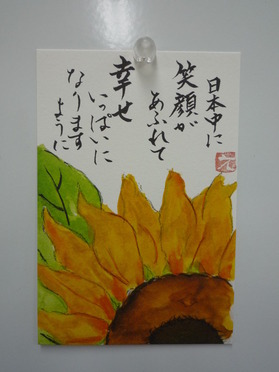 日本中に
笑顔が
あふれて
幸せ
いっぱいに
なります
ように